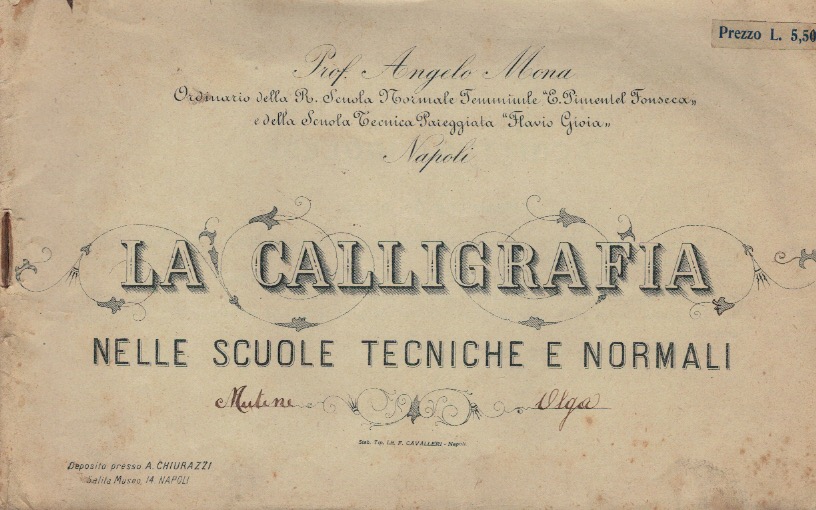 Prezzo L. 5,50
Prof. Angelo Mona
Ordinario della R. Scuola Normale Femminile "E. Pimentel Fonseca„
e della Scuola Tecnica Pareggiata "Flavio Gioia„
Napoli
LA CALLIGRAFIA
NELLE SCUOLE TECNICHE E NORMALI
Olga
Stab. Tip. Lit. F. CAVALLERI - Napoli
Deposito presso A. CHIURAZZI
Salita Museo, 14. NAPOLI